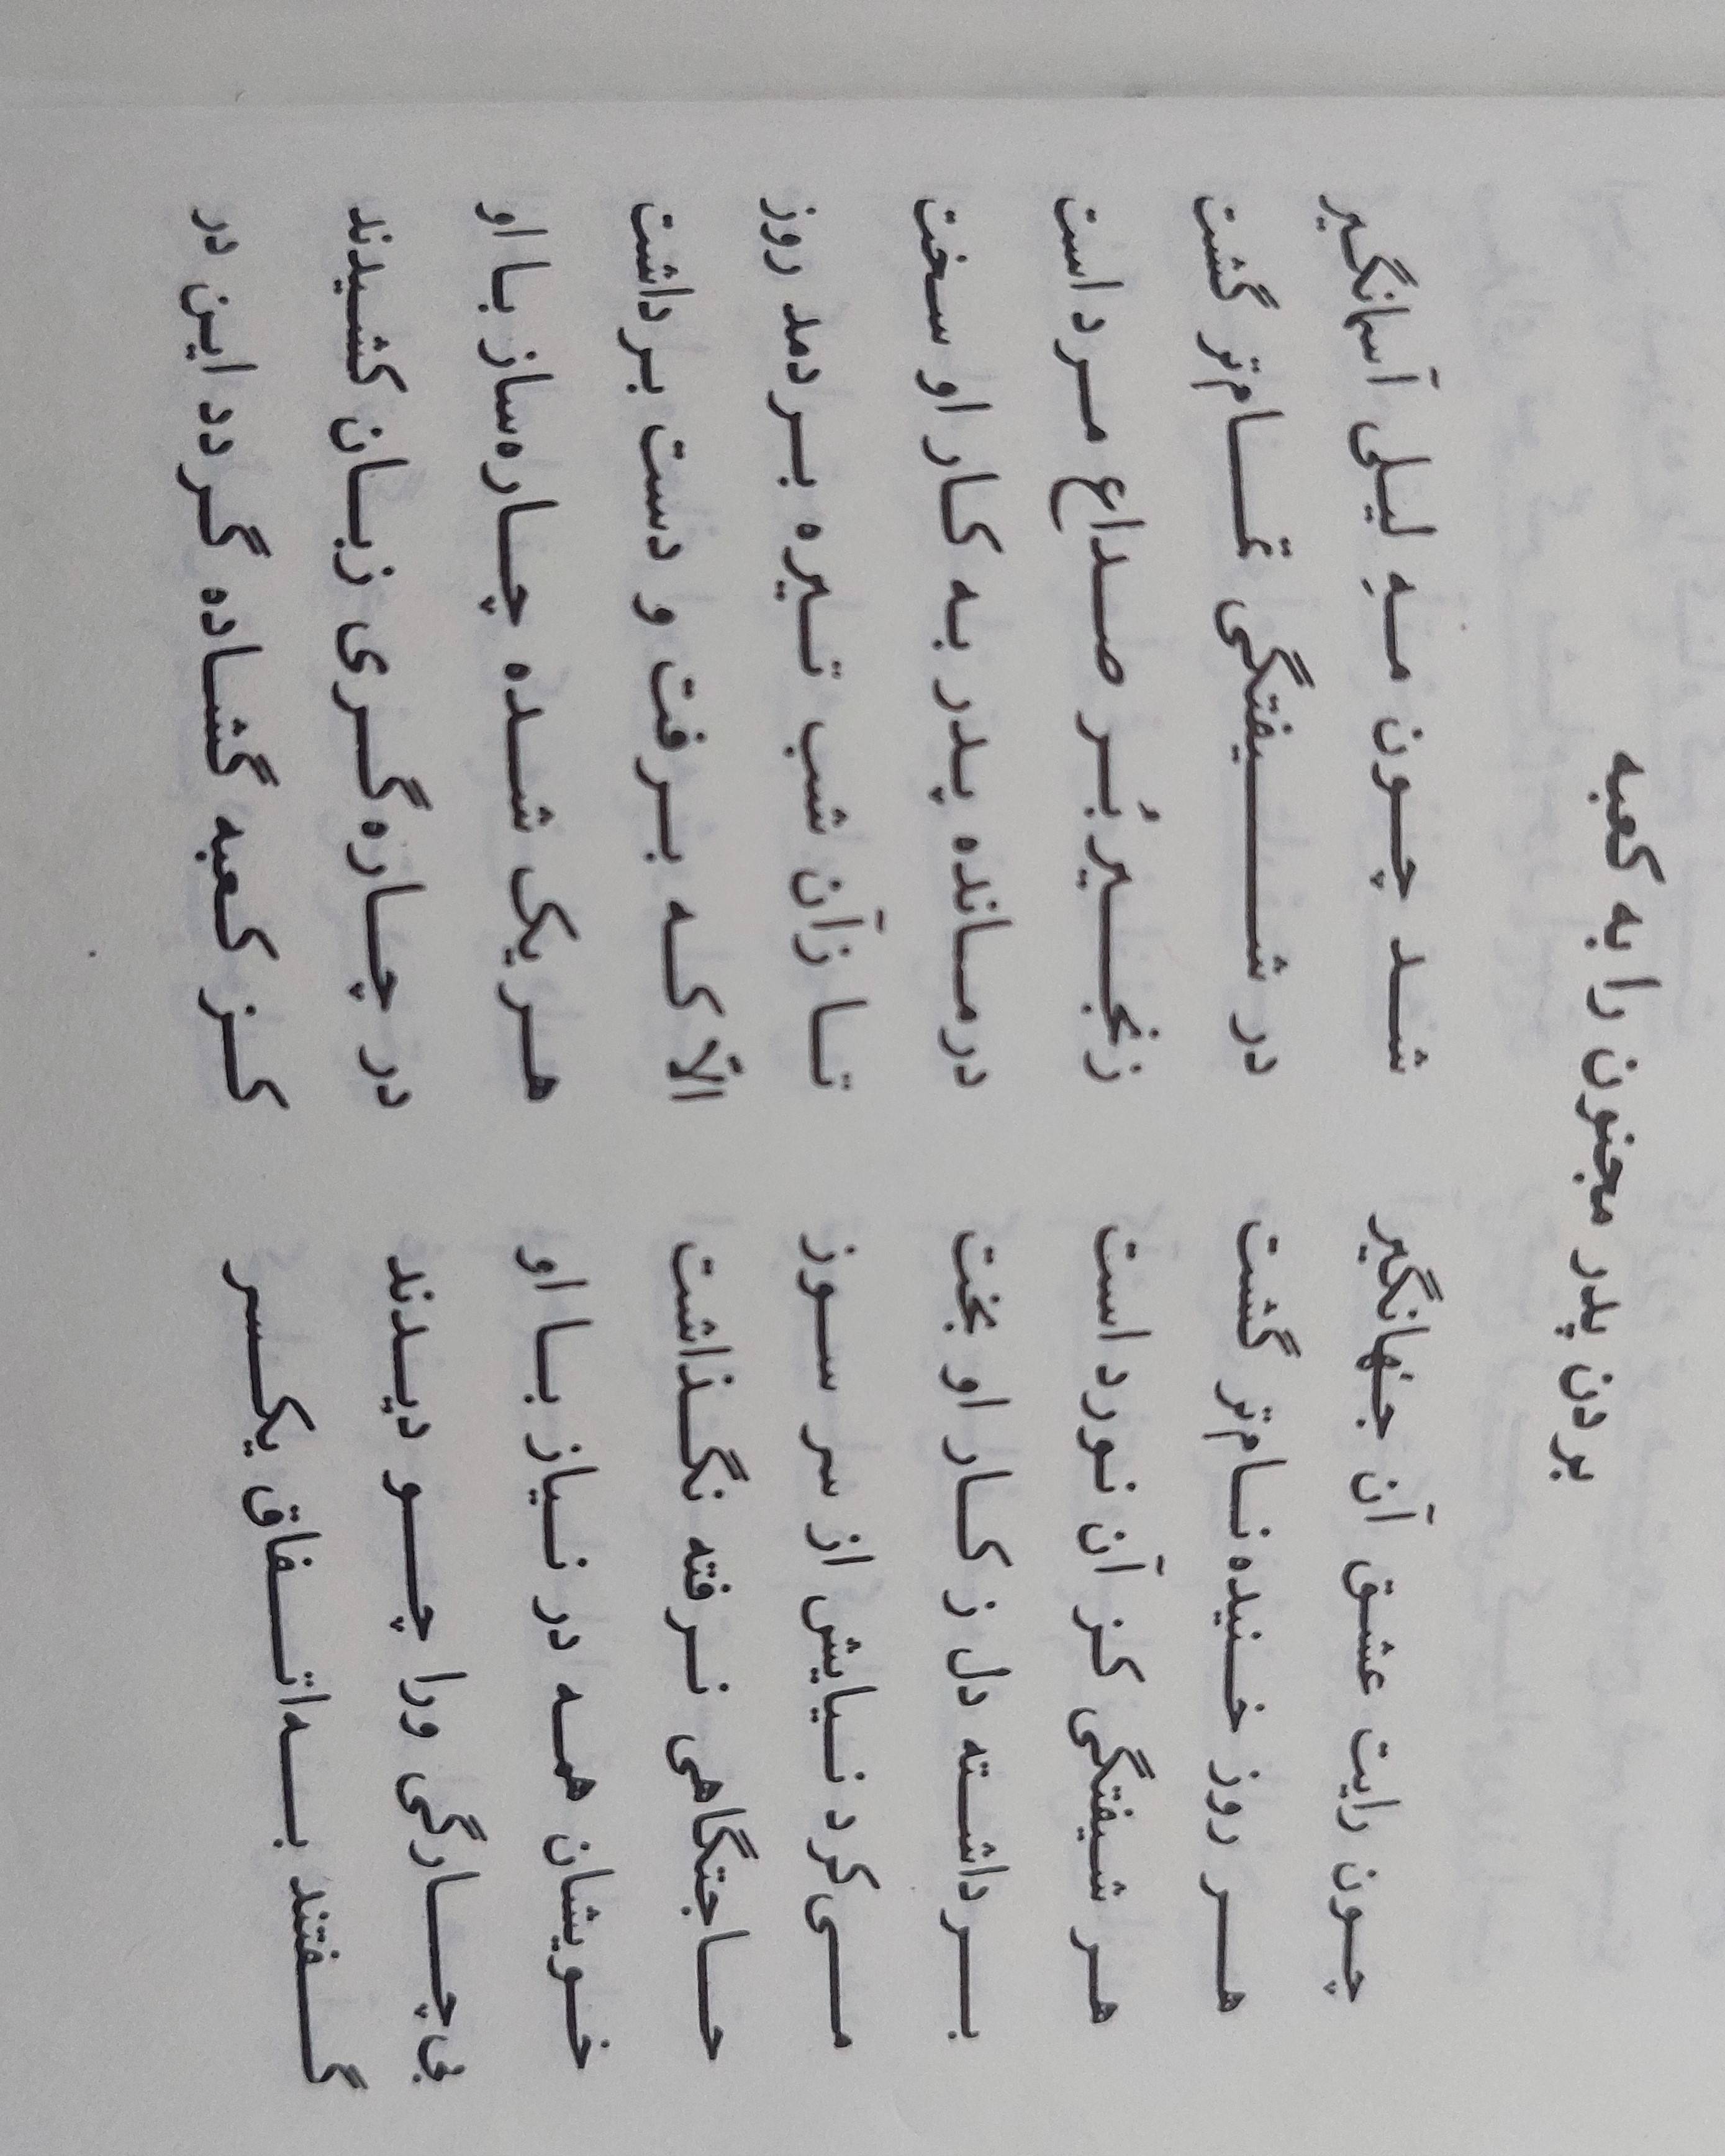 بردن پدر مجنون را به کعبه
چون رایت عشق آن جهانگیر شد چون مهِ لیلی آسمانگیر
هر روز خنیده‌نام‌تر گشت در شیفتگی تمام‌تر گشت
هر شیفتگی کز آن نورد است زنجیربُر صداع مرد است
برداشته دل ز کار او بخت درمانده پدر به کار او سخت
می‌کرد نیایش از سر سوز تا زآن شب تیره بردمد روز
حاجتگاهی نرفته نگذاشت الّا که برفت و دست برداشت
خویشان همه در نیاز با او هر یک شده چاره‌ساز با او
بی‌چارگی ورا چو دیدند در چاره‌گری زبان کشیدند
گفتند به‌اتفاق یکسر کز کعبه گشاده گردد این در